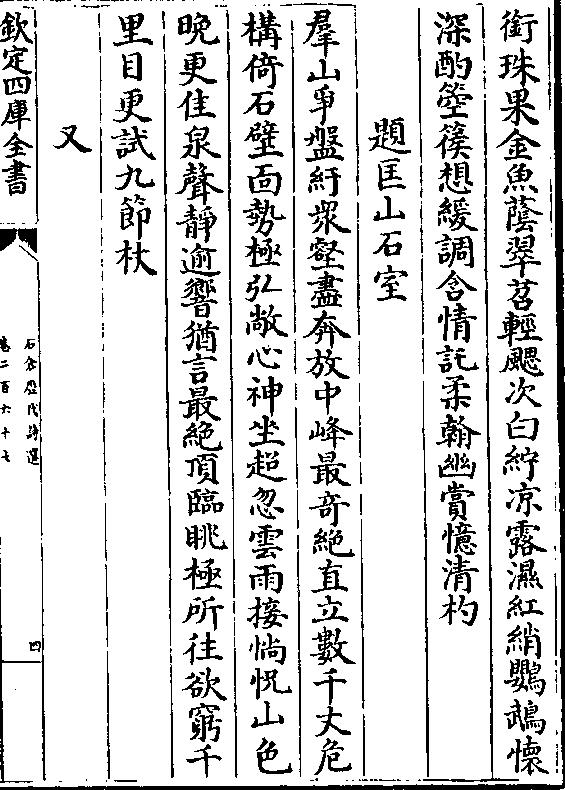 銜珠果金魚蔭翠苕輕颸次白紵凉露濕紅綃鸚鵡懷
深酌箜篌想緩調含情託柔翰幽賞憶清杓
題匡山石室
羣山爭盤紆衆壑盡奔放中峰最奇絶直立數千丈危
構倚石壁面勢極弘敞心神坐超忽雲雨接惝怳山色
晩更佳泉聲靜逾響猶言最絶頂臨眺極所往欲窮千
里目更試九節杖
又
欽定四庫全書
石倉歴代詩選
卷二百六十七
四